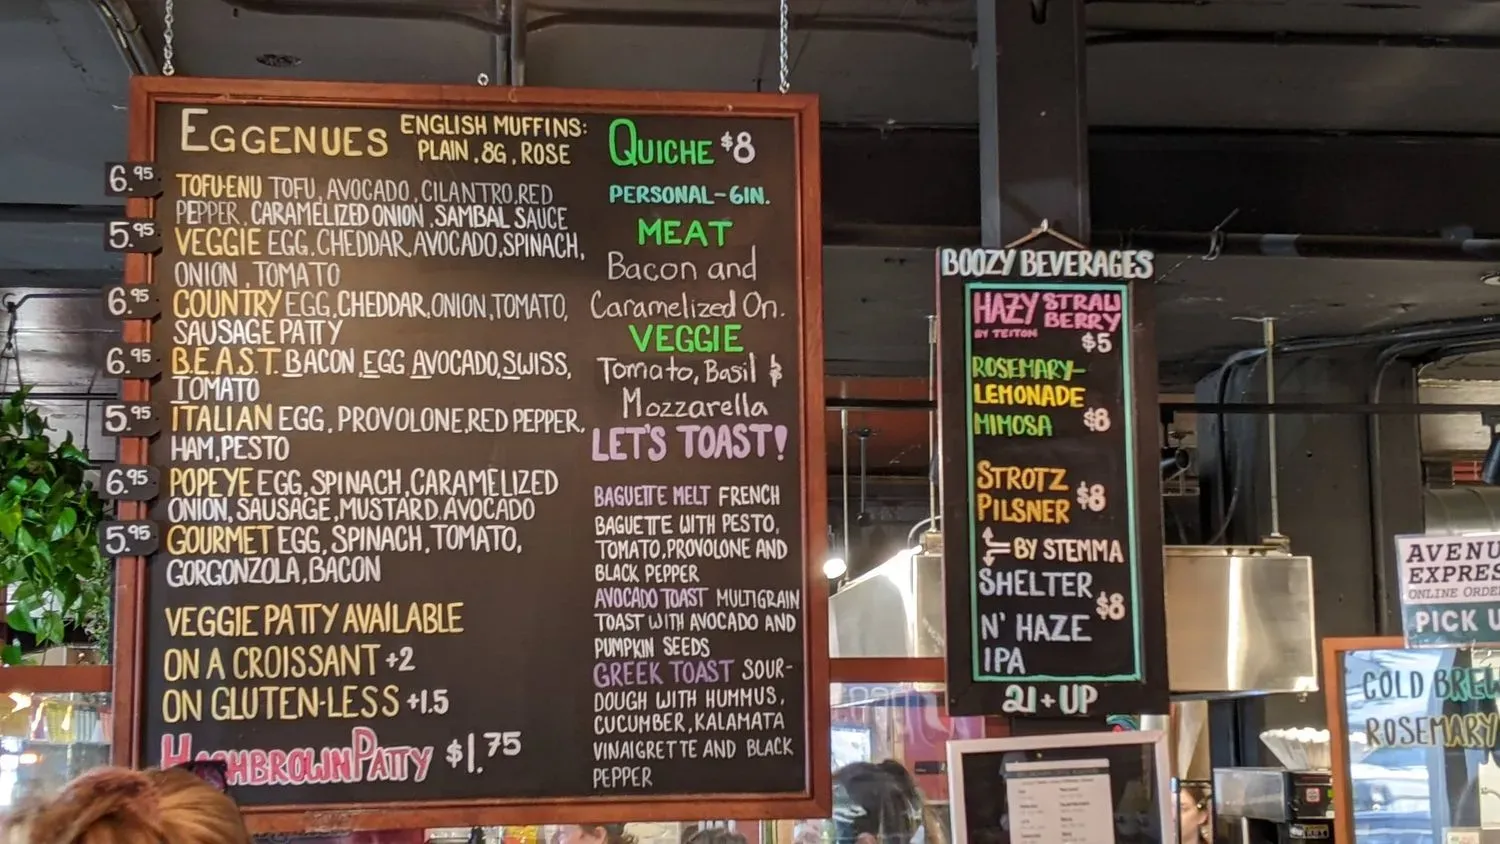 EGGENUES
ENGLISH MUFFINS:
PLAIN, 8G, ROSE
6.95
TOFU-ENU TOFU, AVOCADO, CILANTRO, RED
PEPPER, CARAMELIZED ONION, SAMBAL SAUCE
5.95
VEGGIE EGG, CHEDDAR, AVOCADO, SPINACH,
ONION, TOMATO
6.95
COUNTRY EGG, CHEDDAR, ONION, TOMATO,
SAUSAGE PATTY
6.95
B.E.A.S.T. BACON, EGG AVOCADO, SWISS,
TOMATO
5.95
ITALIAN EGG, PROVOLONE, RED PEPPER,
HAM, PESTO
6.95
POPEYE EGG, SPINACH, CARAMELIZED
ONION, SAUSAGE, MUSTARD, AVOCADO
5.95
GOURMET EGG, SPINACH, TOMATO,
GORGONZOLA, BACON
VEGGIE PATTY AVAILABLE
ON A CROISSANT +2
ON GLUTEN-LESS +1.5
HASHBROWN PATTY $1.75
QUICHE $8
PERSONAL - 6IN.
MEAT
Bacon and
Caramelized On.
VEGGIE
Tomato, Basil &
Mozzarella
LET'S TOAST!
BAGUETTE MELT FRENCH
BAGUETTE WITH PESTO,
TOMATO, PROVOLONE AND
BLACK PEPPER
AVOCADO TOAST MULTIGRAIN
TOAST WITH AVOCADO AND
PUMPKIN SEEDS
GREEK TOAST SOUR-
DOUGH WITH HUMMUS,
CUCUMBER, KALAMATA
VINAIGRETTE AND BLACK
PEPPER
BOOZY BEVERAGES
HAZY STRAW
BERRY
BY TEITON
$5
ROSEMARY-
LEMONADE
MIMOSA $8
STROTZ
PILSNER $8
BY STEMMA
SHELTER
N' HAZE $8
IPA
21 + UP
AVENU
EXPRES
ONLINE ORDE
PICK U
COLD BREW
ROSEMARY